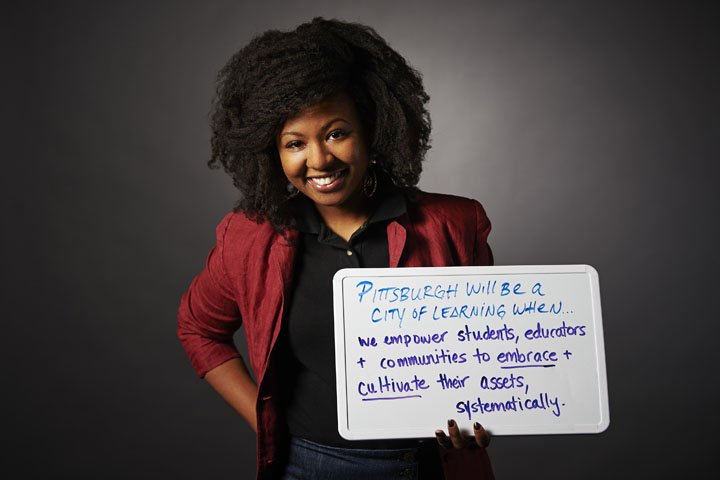 PITTSBURGH WILL BE A
CITY OF LEARNING WHEN...
we empower students, educators
+ communities to embrace +
cultivate their assets,
systematically.